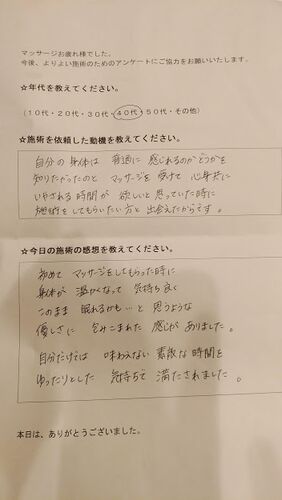 マッサージお疲れ様でした。
今後、よりよい施術のためのアンケートにご協力をお願いいたします。
☆年代を教えてください。
（10代・20代・30代・40代・50代・その他）
☆施術を依頼した動機を教えてください。
自分の身体は 普通に 感じれるのかどうかを
知りたかったのと マッサージを 受けて 心身共に
いやされる 時間が 欲しいと 思っていた時に
施術をしてもらいたい方と 出会えたからです。
☆今日の施術の感想を教えてください。
初めて マッサージをしてもらった時に
身体が 温かくなって 気持ち良く
このまま 眠れるかも…と 思うような
優しさに 包みこまれた 感じが ありました。
自分だけでは 味わえない 素敵な時間を
ゆったりとした 気持ちで 満たされました。
本日は、ありがとうございました。